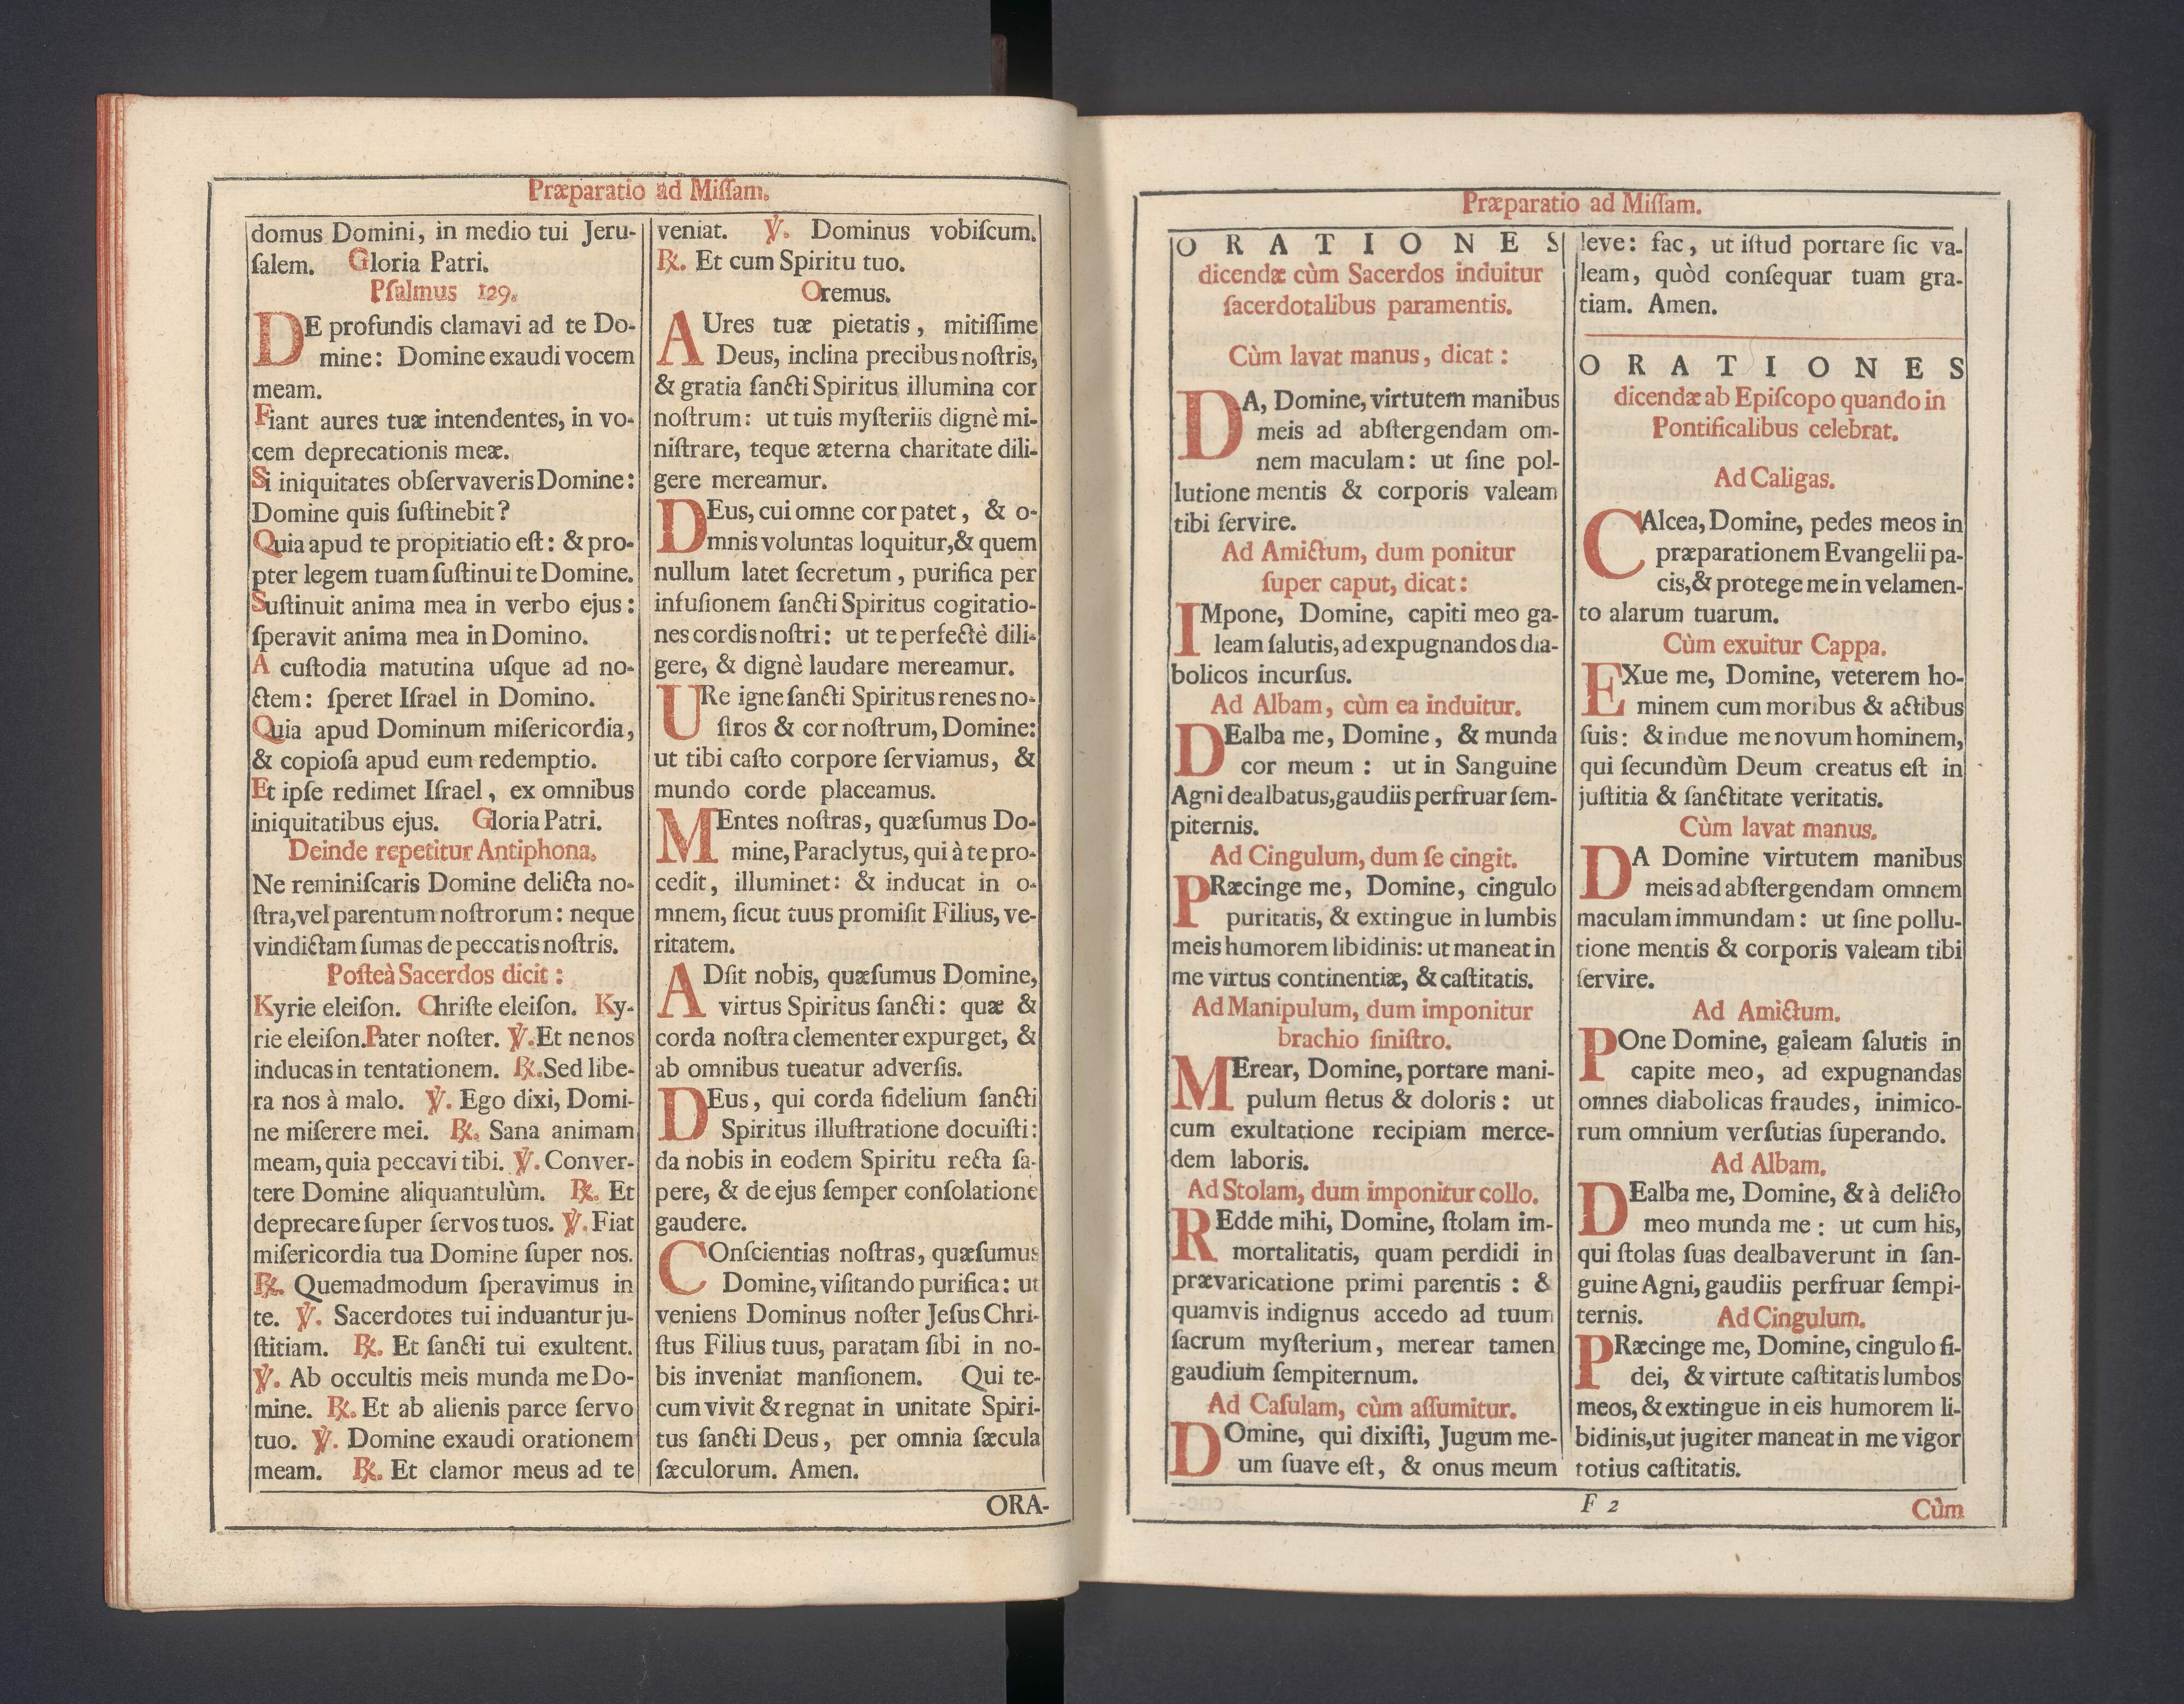 Præparatio ad Miſſam.
domus Domini, in medio tui Jeru-
ſalem. Gloria Patri.
Pſalmus 129.
DE profundis clamavi ad te Do-
mine: Domine exaudi vocem
meam.
Fiant aures tuæ intendentes, in vo-
cem deprecationis meæ.
Si iniquitates obſervaveris Domine:
Domine quis ſuſtinebit?
Quia apud te propitiatio eſt: & pro-
pter legem tuam ſuſtinui te Domine.
Suſtinuit anima mea in verbo ejus:
ſperavit anima mea in Domino.
A cuſtodia matutina uſque ad no-
ctem: ſperet Iſrael in Domino.
Quia apud Dominum miſericordia,
& copioſa apud eum redemptio.
Et ipſe redimet Iſrael, ex omnibus
iniquitatibus ejus. Gloria Patri.
Deinde repetitur Antiphona.
Ne reminiſcaris Domine delicta no-
ſtra, vel parentum noſtrorum: neque
vindictam ſumas de peccatis noſtris.
Poſteà Sacerdos dicit:
Kyrie eleiſon. Chriſte eleiſon. Ky-
rie eleiſon. Pater noſter. ℣. Et ne nos
inducas in tentationem. ℟. Sed libe-
ra nos à malo. ℣. Ego dixi, Domi-
ne miſerere mei. ℟. Sana animam
meam, quia peccavi tibi. ℣. Conver-
tere Domine aliquantulùm. ℟. Et
deprecare ſuper ſervos tuos. ℣. Fiat
miſericordia tua Domine ſuper nos.
℟. Quemadmodum ſperavimus in
te. ℣. Sacerdotes tui induantur ju-
ſtitiam. ℟. Et ſancti tui exultent.
℣. Ab occultis meis munda me Do-
mine. ℟. Et ab alienis parce ſervo
tuo. ℣. Domine exaudi orationem
meam. ℟. Et clamor meus ad te
veniat. ℣. Dominus vobiſcum.
℟. Et cum Spiritu tuo.
Oremus.
AUres tuæ pietatis, mitiſſime
Deus, inclina precibus noſtris,
& gratia ſancti Spiritus illumina cor
noſtrum: ut tuis myſteriis dignè mi-
niſtrare, teque æterna charitate dili-
gere mereamur.
DEus, cui omne cor patet, & o-
mnis voluntas loquitur, & quem
nullum latet ſecretum, purifica per
infuſionem ſancti Spiritus cogitatio-
nes cordis noſtri: ut te perfectè dili-
gere, & dignè laudare mereamur.
URe igne ſancti Spiritus renes no-
ſtros & cor noſtrum, Domine:
ut tibi caſto corpore ſerviamus, &
mundo corde placeamus.
MEntes noſtras, quæſumus Do-
mine, Paraclytus, qui à te pro-
cedit, illuminet: & inducat in o-
mnem, ſicut tuus promiſit Filius, ve-
ritatem.
ADſit nobis, quæſumus Domine,
virtus Spiritus ſancti: quæ &
corda noſtra clementer expurget, &
ab omnibus tueatur adverſis.
DEus, qui corda fidelium ſancti
Spiritus illuſtratione docuiſti:
da nobis in eodem Spiritu recta ſa-
pere, & de ejus ſemper conſolatione
gaudere.
COnſcientias noſtras, quæſumus
Domine, viſitando purifica: ut
veniens Dominus noſter Jeſus Chri-
ſtus Filius tuus, paratam ſibi in no-
bis inveniat manſionem. Qui te-
cum vivit & regnat in unitate Spiri-
tus ſancti Deus, per omnia ſæcula
ſæculorum. Amen.
ORA-
Præparatio ad Miſſam.
ORATIONES
dicendæ cùm Sacerdos induitur
ſacerdotalibus paramentis.
Cùm lavat manus, dicat:
DA, Domine, virtutem manibus
meis ad abſtergendam om-
nem maculam: ut ſine pol-
lutione mentis & corporis valeam
tibi ſervire.
Ad Amictum, dum ponitur
ſuper caput, dicat:
IMpone, Domine, capiti meo ga-
leam ſalutis, ad expugnandos dia-
bolicos incurſus.
Ad Albam, cùm ea induitur.
DEalba me, Domine, & munda
cor meum: ut in Sanguine
Agni dealbatus, gaudiis perfruar ſem-
piternis.
Ad Cingulum, dum ſe cingit.
PRæcinge me, Domine, cingulo
puritatis, & extingue in lumbis
meis humorem libidinis: ut maneat in
me virtus continentiæ, & caſtitatis.
Ad Manipulum, dum imponitur
brachio ſiniſtro.
MErear, Domine, portare mani-
pulum fletus & doloris: ut
cum exultatione recipiam merce-
dem laboris.
Ad Stolam, dum imponitur collo.
REdde mihi, Domine, ſtolam im-
mortalitatis, quam perdidi in
prævaricatione primi parentis: &
quamvis indignus accedo ad tuum
ſacrum myſterium, merear tamen
gaudium ſempiternum.
Ad Caſulam, cùm aſſumitur.
DOmine, qui dixiſti, Jugum me-
um ſuave eſt, & onus meum
leve: fac, ut iſtud portare ſic va-
leam, quòd conſequar tuam gra-
tiam. Amen.
ORATIONES
dicendæ ab Epiſcopo quando in
Pontificalibus celebrat.
Ad Caligas.
CAlcea, Domine, pedes meos in
præparationem Evangelii pa-
cis, & protege me in velamen-
to alarum tuarum.
Cùm exuitur Cappa.
EXue me, Domine, veterem ho-
minem cum moribus & actibus
ſuis: & indue me novum hominem,
qui ſecundùm Deum creatus eſt in
juſtitia & ſanctitate veritatis.
Cùm lavat manus.
DA Domine virtutem manibus
meis ad abſtergendam omnem
maculam immundam: ut ſine pollu-
tione mentis & corporis valeam tibi
ſervire.
Ad Amictum.
POne Domine, galeam ſalutis in
capite meo, ad expugnandas
omnes diabolicas fraudes, inimico-
rum omnium verſutias ſuperando.
Ad Albam.
DEalba me, Domine, & à delicto
meo munda me: ut cum his,
qui ſtolas ſuas dealbaverunt in ſan-
guine Agni, gaudiis perfruar ſempi-
ternis. Ad Cingulum.
PRæcinge me, Domine, cingulo fi-
dei, & virtute caſtitatis lumbos
meos, & extingue in eis humorem li-
bidinis, ut jugiter maneat in me vigor
totius caſtitatis.
F 2
Cùm